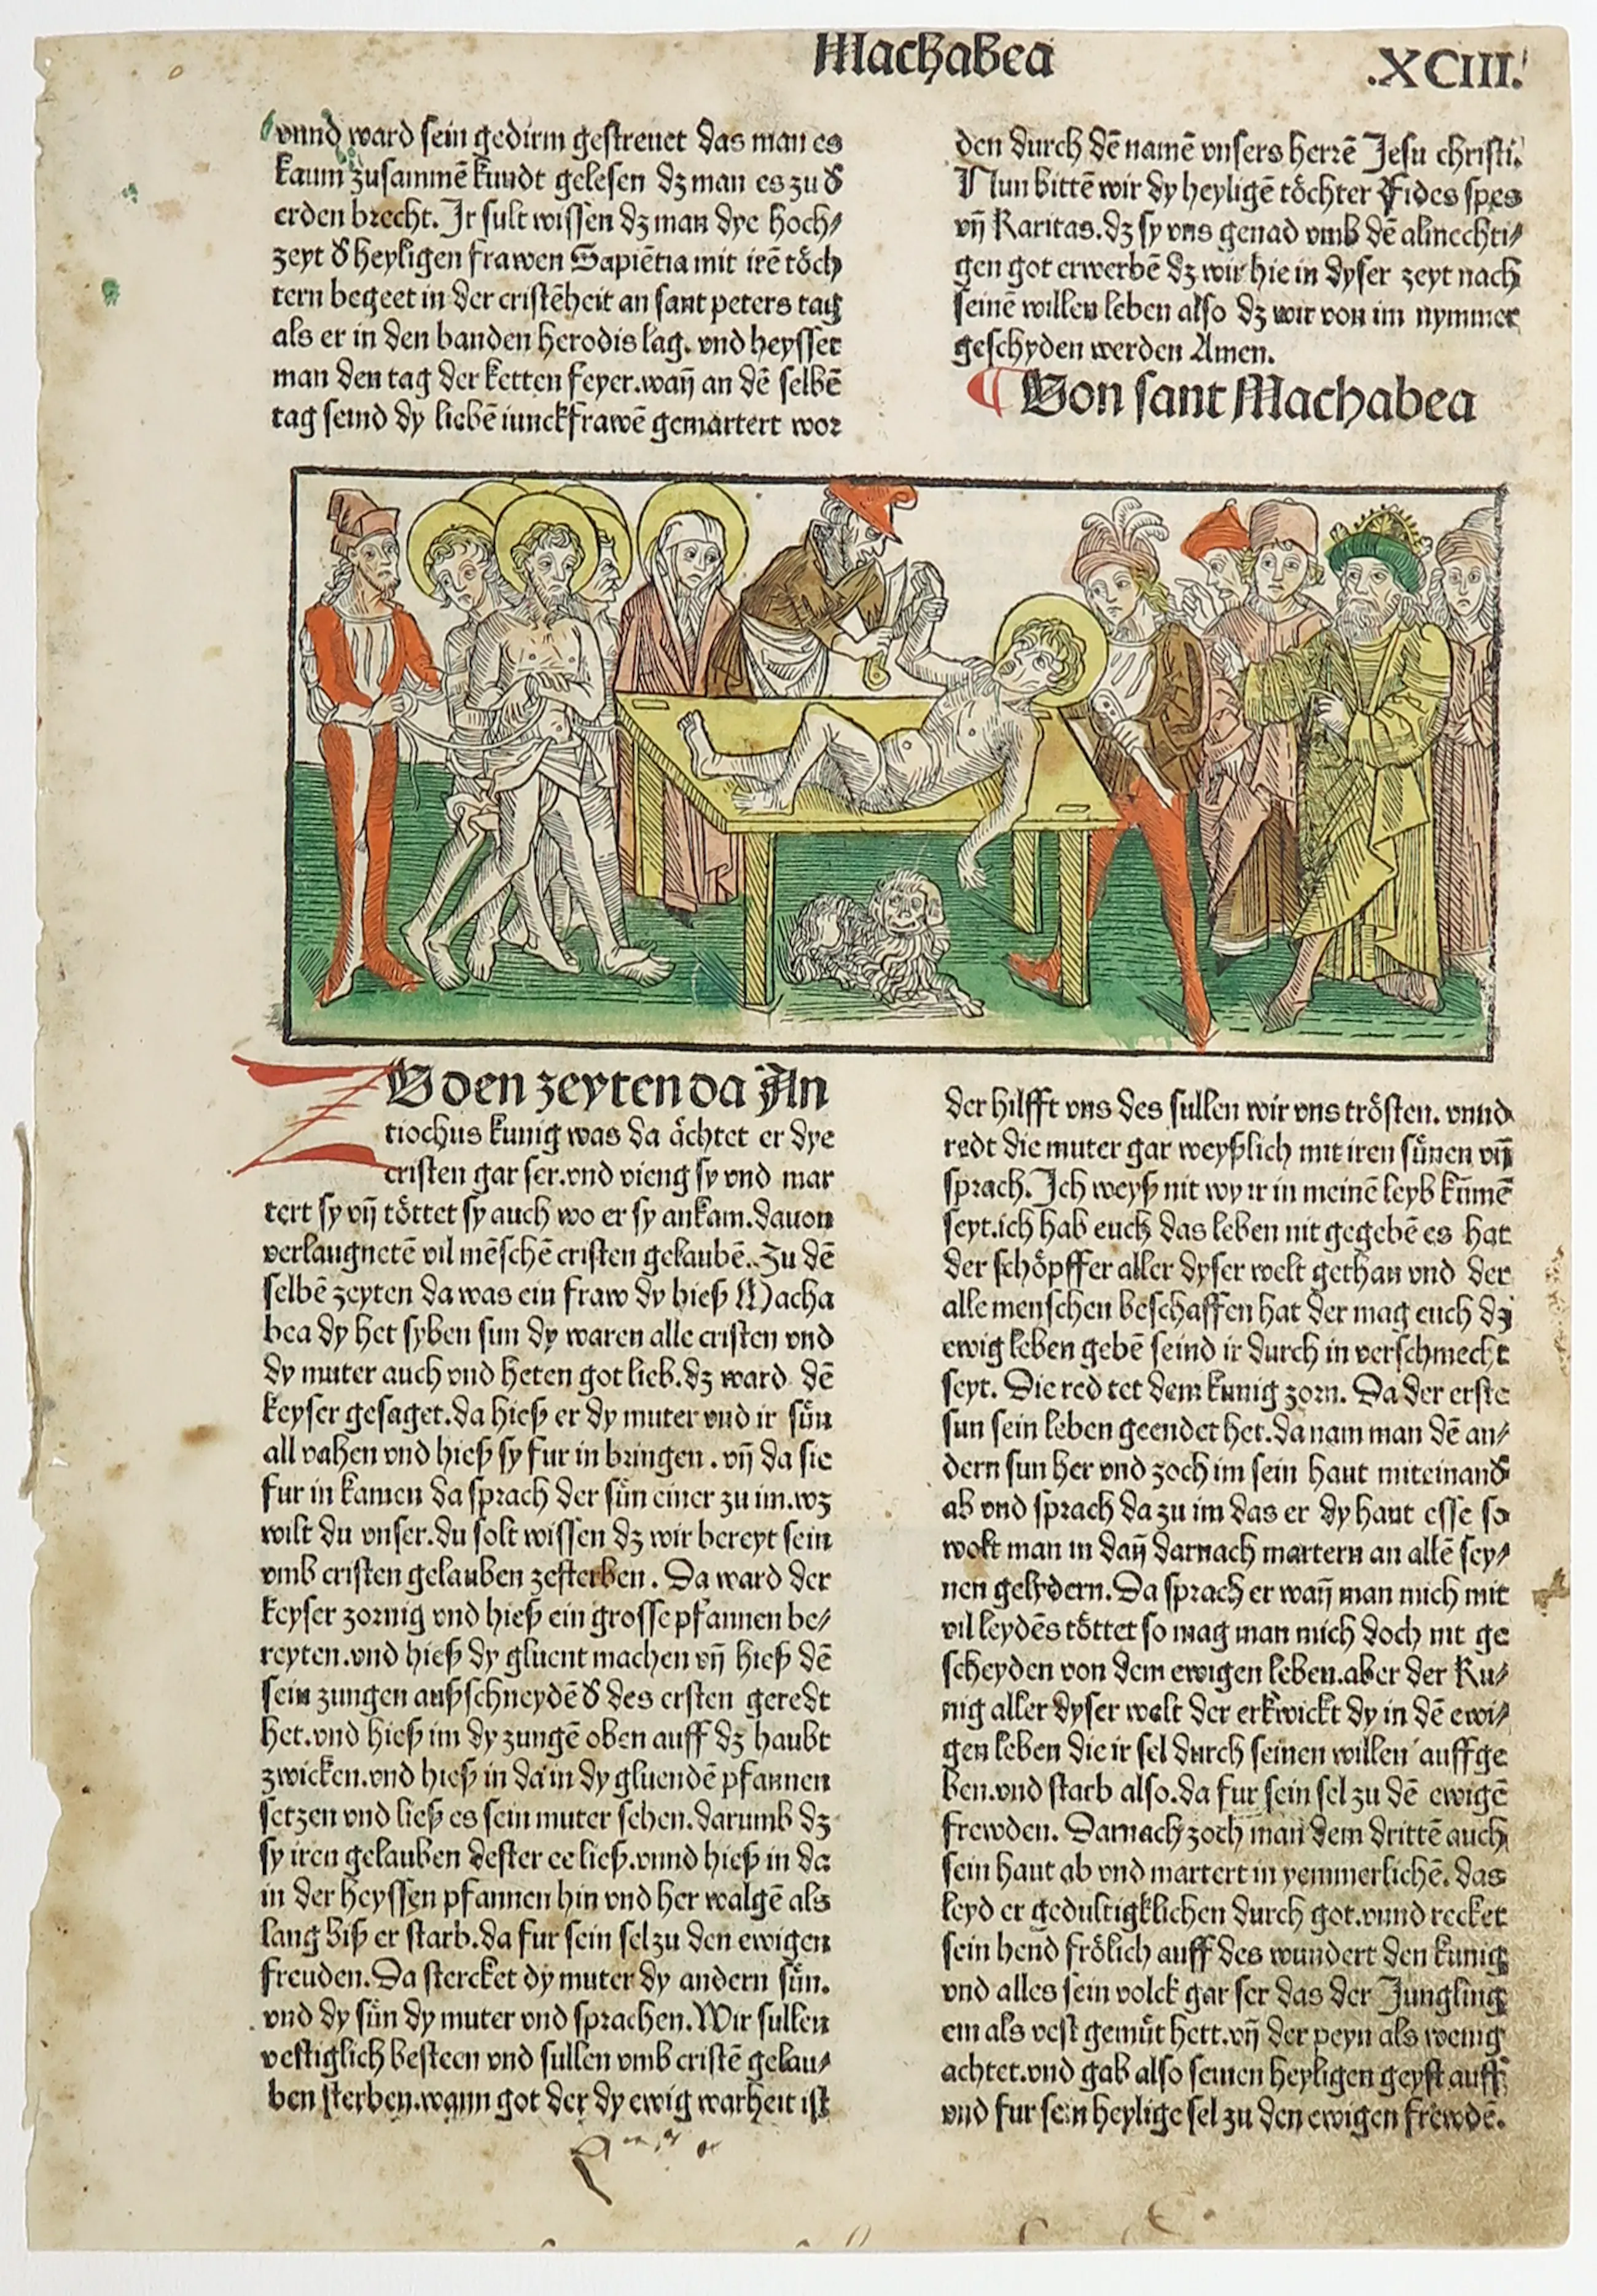 Machabea
.XCIII.
vnnd ward sein gedirm gestreuet das man es
kaum zusammē kundt gelesen dz man es zu d̕
erden brecht. Jr sult wissen dz man dye hoch⸗
zeyt d̕ heyligen frawen Sapiētia mit irē töch
tern begeet in der cristēheit an sant peters tag
als er in den banden herodis lag. vnd heysset
man den tag der ketten feyer. wañ an dē selbē
tag seind dy liebē iunckfrawē gemartert wor
den durch dē namē vnsers herrē Jesu christi.
Nun bittē wir dy heyligē töchter Fides spes
vñ Karitas. dz sy vns genad vmb dē almechti⸗
gen got erwerbē dz wir hie in dyser zeyt nach
seinē willen leben also dz wir von im nymmer
geschyden werden Amen.
¶ Von sant Machabea
ZV den zeyten da An
tiochus kunig was da ächtet er dye
cristen gar ser. vnd vieng sy vnd mar
tert sy vñ töttet sy auch wo er sy ankam. dauon
verlaugnetē vil mēschē cristen gelaubē. Zu dē
selbē zeyten da was ein fraw dy hieß Macha
bea dy het syben sun dy waren alle cristen vnd
dy muter auch vnd heten got lieb. dz ward dē
keyser gesaget. da hieß er dy muter vnd ir sün
all vahen vnd hieß sy fur in bringen. vñ da sie
fur in kamen da sprach der sün einer zu im. wz
wilt du vnser. du solt wissen dz wir bereyt sein
vmb cristen gelauben zesterben. Da ward der
keyser zornig vnd hieß ein grosse pfannen be⸗
reyten. vnd hieß dy gluent machen vñ hieß dē
sein zungen außschneydē d̕ des ersten geredt
het. vnd hieß im dy zungē oben auff dz haubt
zwicken. vnd hieß in da in dy gluendē pfannen
setzen vnd ließ es sein muter sehen. darumb dz
sy iren gelauben dester ee ließ. vnnd hieß in da
in der heyssen pfannen hin vnd her walgē als
lang biß er starb. da fur sein sel zu den ewigen
freuden. Da stercket dy muter dy andern sün.
vnd dy sün dy muter vnd sprachen. Wir sullen
vestiglich besteen vnd sullen vmb cristē gelau⸗
ben sterben. wann got der dy ewig warheit ist
der hilfft vns des sullen wir vns trösten. vnnd
redt die muter gar weyßlich mit iren sünen vñ
sprach. Jch weyß nit wy ir in meinē leyb kumē
seyt. ich hab euch das leben nit gegebē es hat
der schöpffer aller dyser welt gethan vnd der
alle menschen beschaffen hat der mag euch dz
ewig leben gebē seind ir durch in verschmecht
seyt. Die red tet dem kunig zorn. Da der erste
sun sein leben geendet het. da nam man dē an⸗
dern sun her vnd zoch im sein haut miteinand̕
ab vnd sprach da zu im das er dy haut esse so
wolt man in dañ darnach martern an allē sey⸗
nen gelydern. Da sprach er wañ man mich mit
vil leydēs töttet so mag man mich doch nit ge
scheyden von dem ewigen leben. aber der Ku⸗
nig aller dyser welt der erkwickt dy in dē ewi⸗
gen leben die ir sel durch seinen willen auffge
ben. vnd starb also. da fur sein sel zu dē ewigē
frewden. Darnach zoch man dem drittē auch
sein haut ab vnd martert in yemmerlichē. das
leyd er gedultigklichen durch got. vnnd recket
sein hend frölich auff des wundert den kunig
vnd alles sein volck gar ser das der Jungling
ein als vest gemüt hett. vñ der peyn als wenig
achtet. vnd gab also seinen heyligen geyst auff
vnd fur sein heylige sel zu den ewigen frewdē.